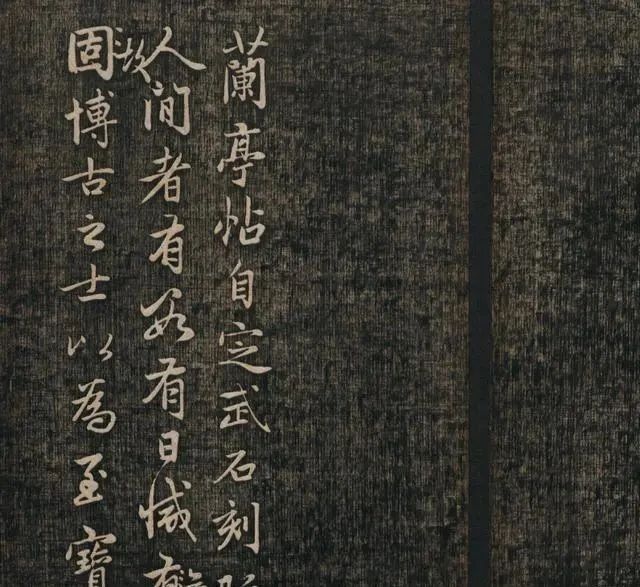 蘭亭帖自定武石刻
人間者有數有日減
故
固博古之士以為至寶